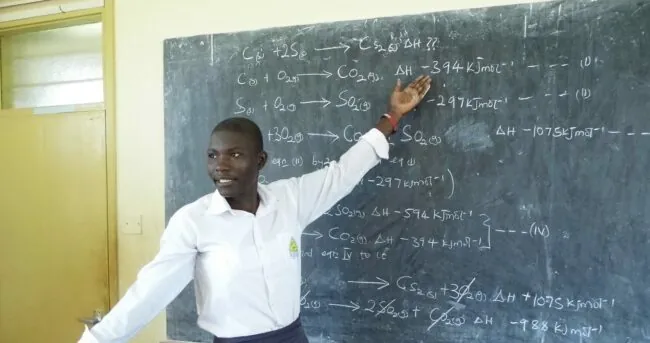 C(s) + 2S(s) → CS₂(s) ΔH ??
C(s) + O₂(g) → CO₂(g) ΔH -394 KJmol⁻¹ --- (I)
S(s) + O₂(g) → SO₂(g) -297 KJmol⁻¹ --- (II)
+ 3O₂(g) → CO SO₂(g) ΔH -1075 KJmol⁻¹ ---
eqn (II) by 2 eq (I)
-297 KJmol⁻¹ )
SO₂(g) ΔH -594 KJmol⁻¹
→ CO₂(g) ΔH -394 KJmol⁻¹ ] --- (IV)
eqn IV to
→ CS₂(s) + 3O₂(g) ΔH +1075 KJmol⁻¹
O₂(g) → 2SO₂(g) + CO₂(g) ΔH -988 KJmol⁻¹